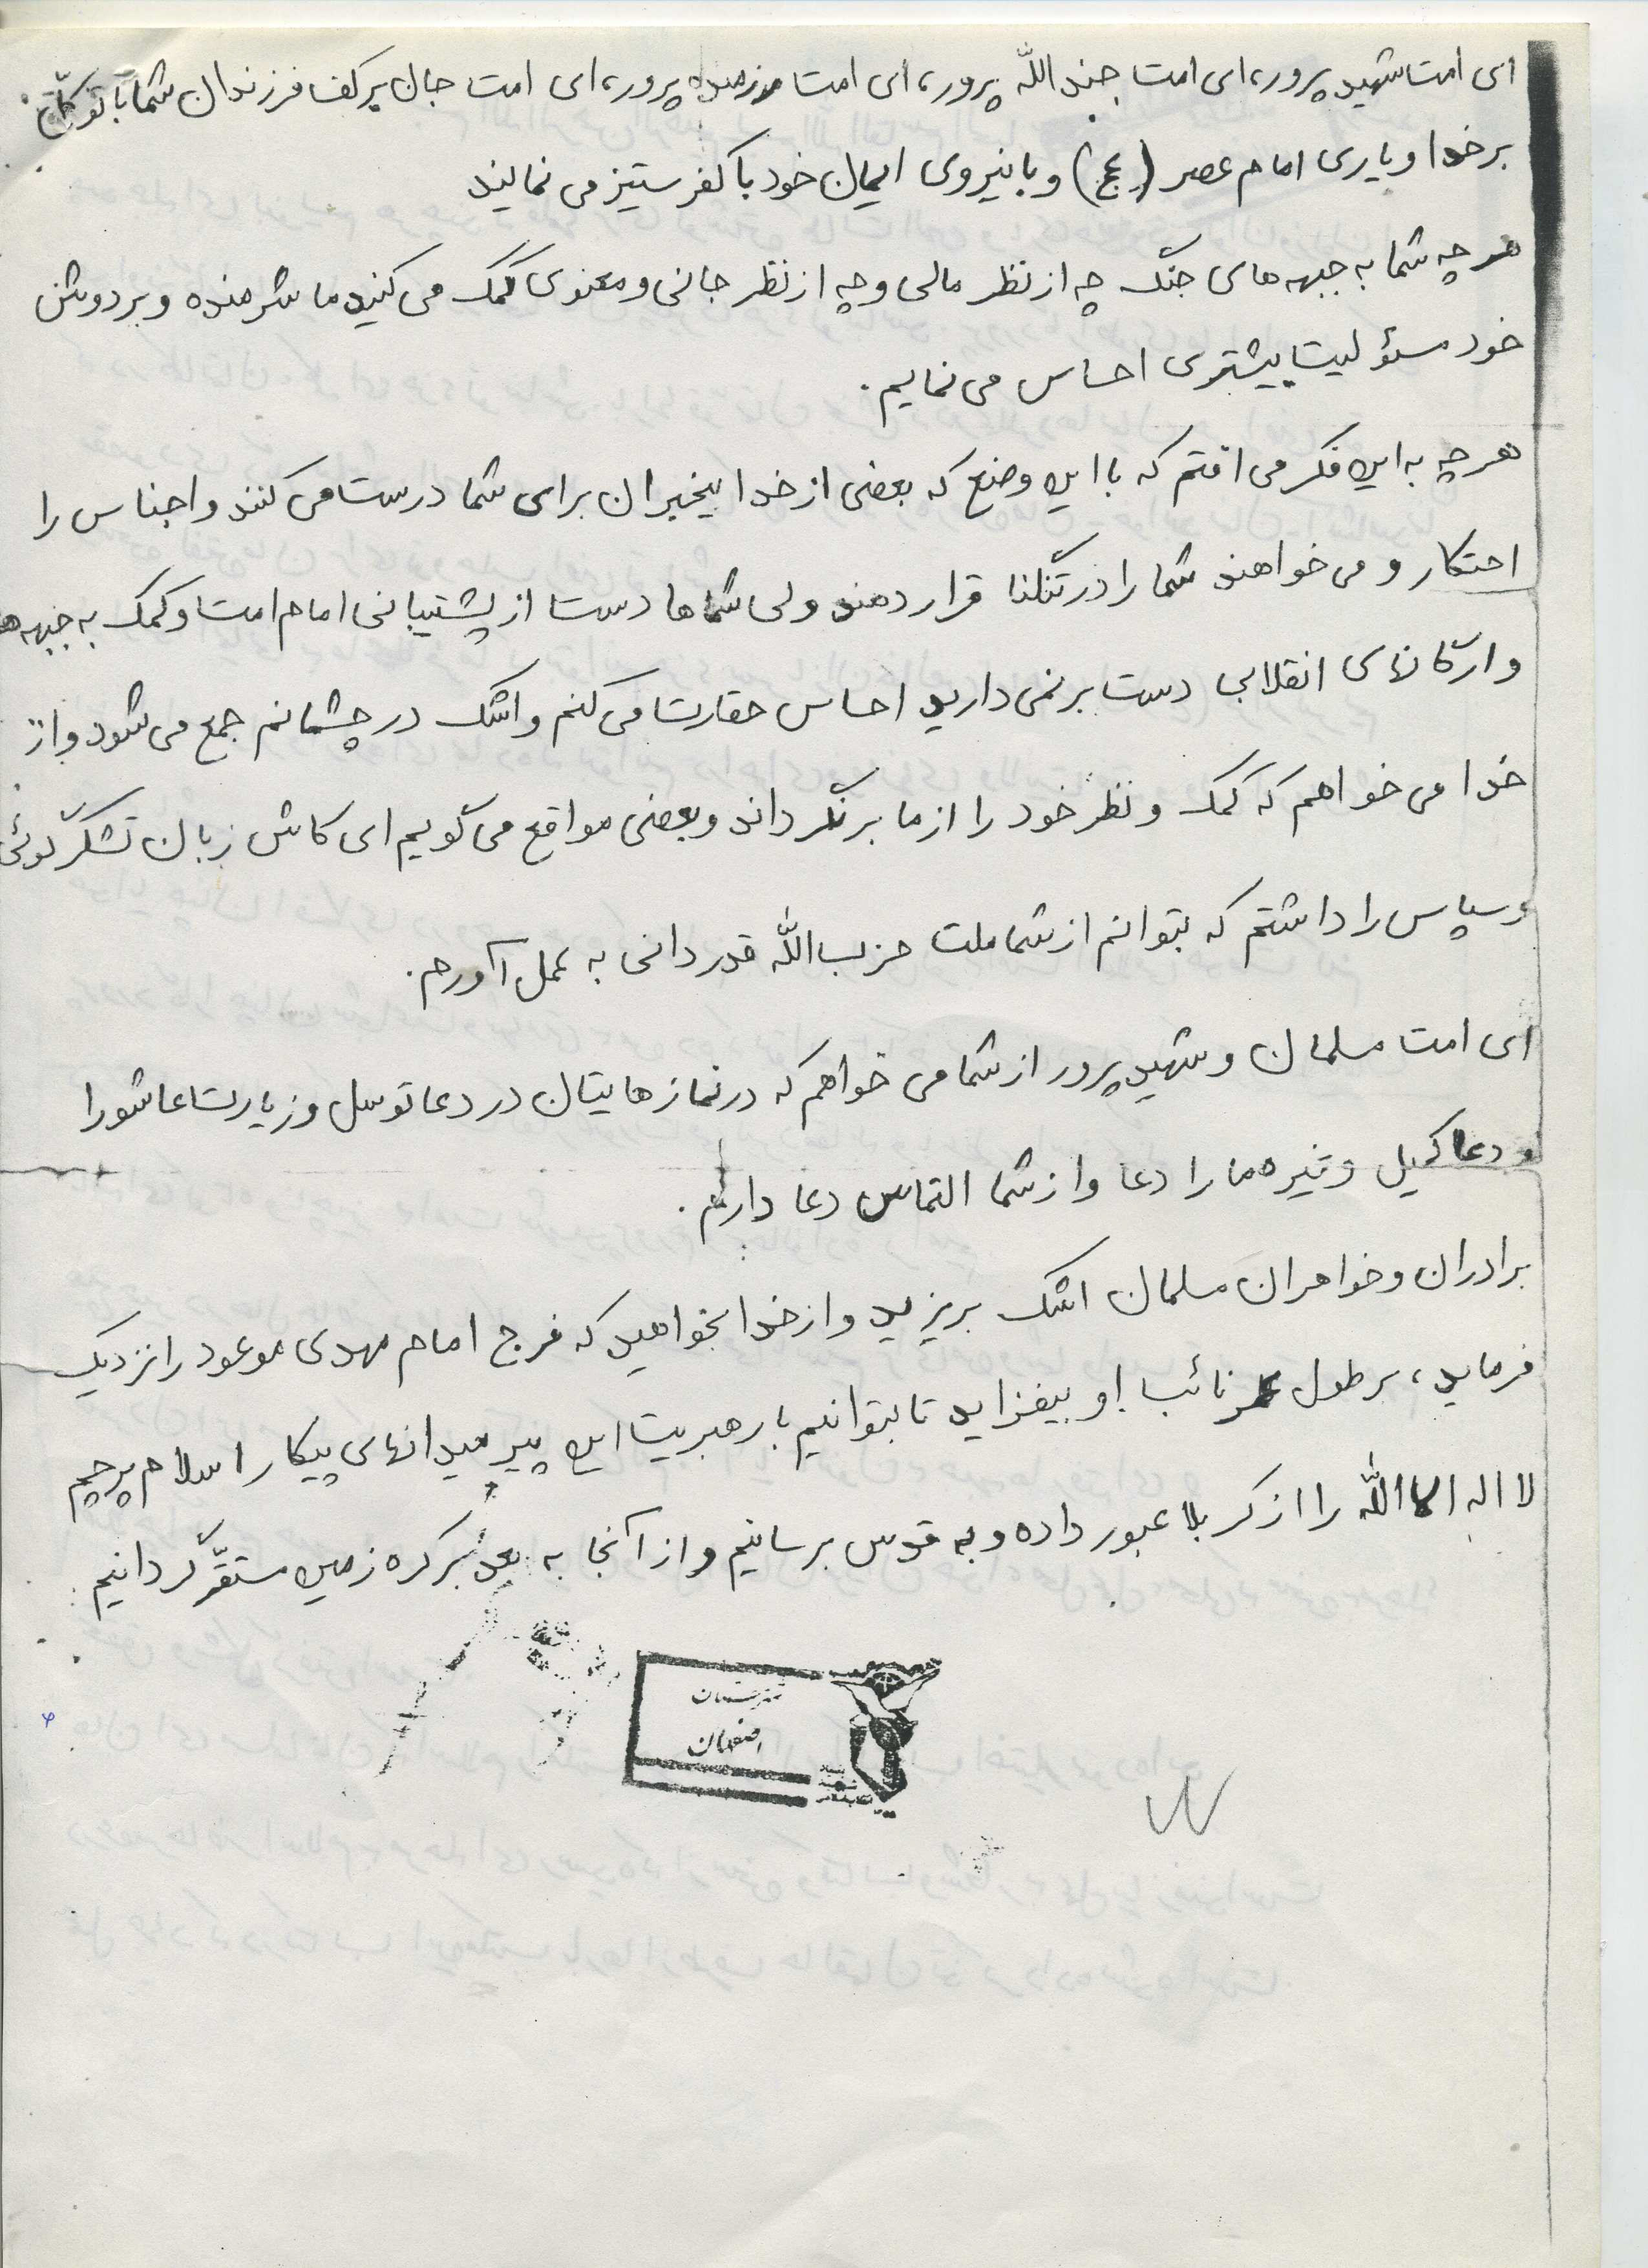 ای امت شهید پرور، ای امت جند الله پرور، ای امت رزمنده پرور، ای امت جان بر کف فرزندان شما با توکل
بر خدا و یاری امام عصر (عج) و با نیروی ایمان خود با کفر ستیز می نمایند
هر چه شما به جبهه های جنگ چه از نظر مالی و چه از نظر جانی و معنوی کمک می کنید ما شرمنده و بر دوش
خود مسئولیت بیشتری احساس می نمایم.
هر چه به این فکر می افتم که با این وضع که بعضی از خدا بیخبران برای شما درست می کنند و اجناس را
احتکار و می خواهند شما را در تنگنا قرار دهند ولی شماها دست از پشتیبانی امام امت و کمک به جبهه ها
و ارگانهای انقلابی دست برنمی دارید احساس حقارت می کنم و اشک در چشمانم جمع می شود و از
خدا می خواهم که کمک و نظر خود را از ما برنگرداند و بعضی مواقع می گویم ای کاش زبان تشکر گوئی
و سپاس را داشتم که بتوانم از شما ملت حزب الله قدردانی به عمل آورم.
ای امت مسلمان و شهید پرور از شما می خواهم که در نمازهایتان در دعا توسل و زیارت عاشورا
و دعا کمیل و غیره ما را دعا و از شما التماس دعا دارم.
برادران و خواهران مسلمان اشک بریزید و از خدا بخواهید که فرج امام مهدی موعود را نزدیک
فرماید، بر طول عمر نائب او بیفزاید تا بتوانیم با رهبریت این پیر میدانهای پیکار اسلام پرچم
لا اله الا الله را از کربلا عبور داده و به قدس برسانیم و از آنجا به بعد بر کره زمین مستقر گردانیم
شهرستان
اصفهان